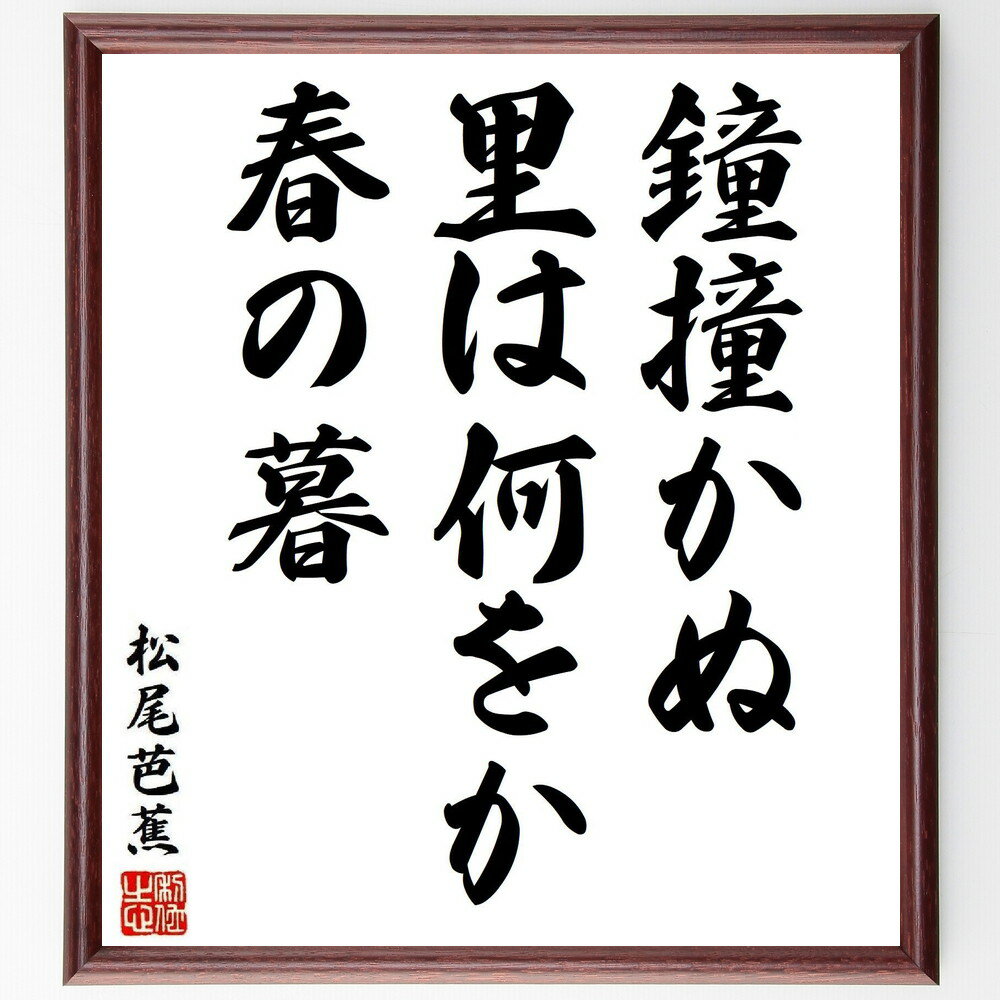 鐘撞かぬ
里は何をか
春の暮
松尾芭蕉